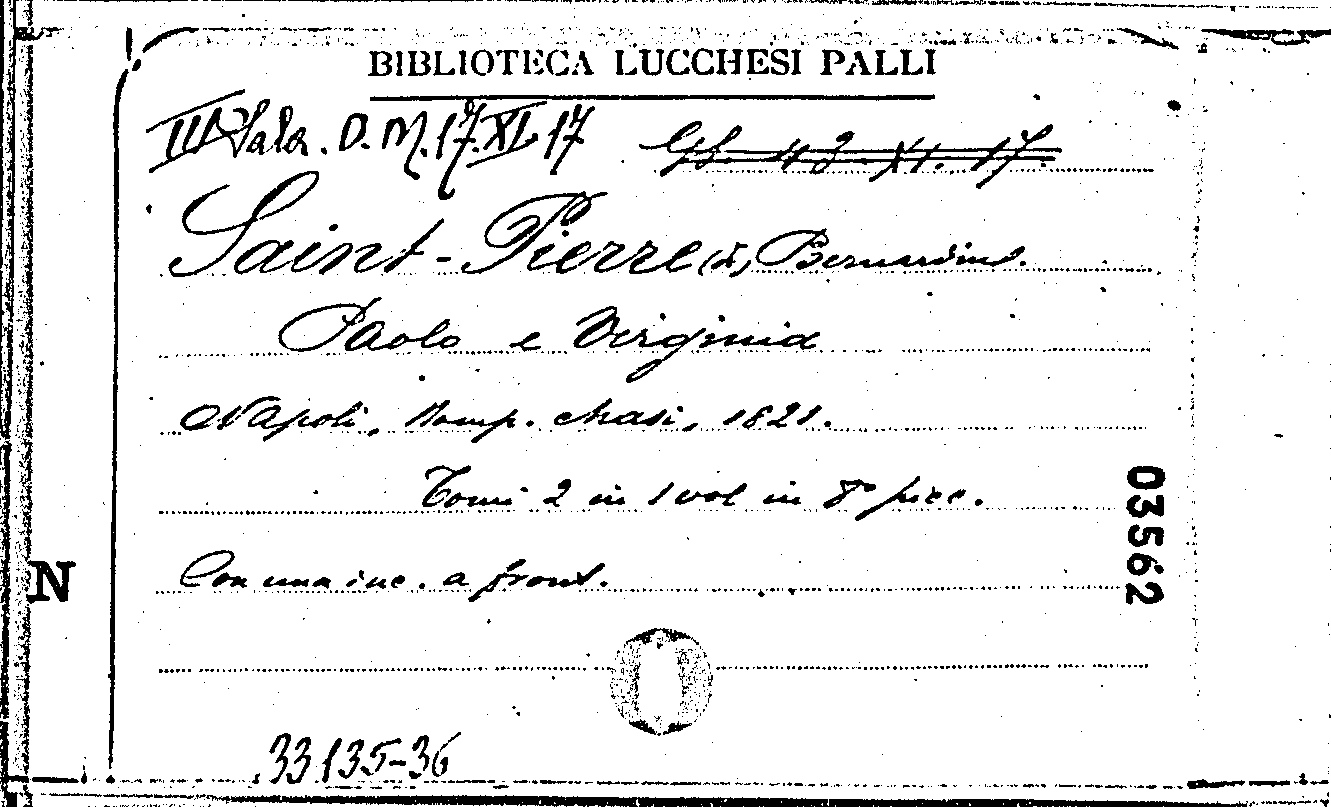 BIBLIOTECA LUCCHESI PALLI
III Sala. D. M. 17. XI. 17
43. XI. 17.
Saint-Pierre (de) Bernardino.
Paolo e Virginia
Napoli, Stamp. Chasi, 1821.
Tomi 2 in 1 vol in 8° picc.
Con una inc. a front.
03562
N
33135-36